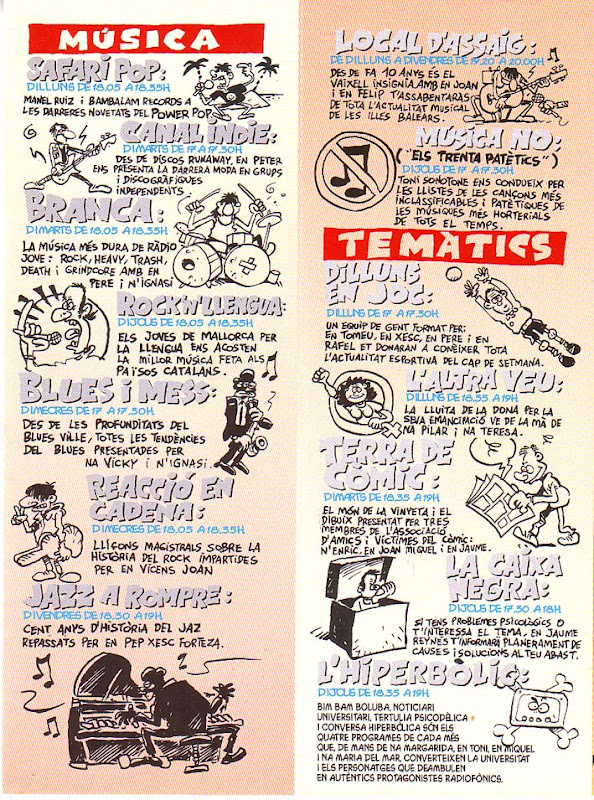 MÚSICA
SAFARI POP:
DILLUNS DE 18.05 A 18.35H
MANEL RUIZ I BAMBALAM RECORDS A
LES DARRERES NOVETATS DEL POWER POP.
CANAL INDIE:
DIMARTS DE 17 A 17.30H
DES DE DISCOS RUNAWAY, EN PETER
ENS PRESENTA LA DARRERA MODA EN GRUPS
I DISCOGRÀFIQUES
INDEPENDENTS.
BRANCA:
DIMARTS DE 18.05 A 18.35H
LA MÚSICA MÉS DURA DE RÀDIO
JOVE: ROCK, HEAVY, TRASH,
DEATH I GRINDCORE AMB EN
PERE I N'IGNASI
ROCK'N'LLENGUA:
DIJOUS DE 18.05 A 18.35H
ELS JOVES DE MALLORCA PER
LA LLENGUA ENS ACOSTEN
LA MILLOR MÚSICA FETA ALS
PAÏSOS CATALANS.
BLUES I MESS:
DIMECRES DE 17 A 17.30H
DES DE LES PROFUNDITATS DEL
BLUES VILLE, TOTES LES TENDÈNCIES
DEL BLUES PRESENTADES PER
NA VICKY I N'IGNASI.
REACCIÓ EN
CADENA:
DIMECRES DE 18.05 A 18.35H
LLIÇONS MAGISTRALS SOBRE LA
HISTÒRIA DEL ROCK IMPARTIDES
PER EN VICENS JOAN
JAZZ A ROMPRE:
DIVENDRES DE 18.30 A 19H
CENT ANYS D'HISTÒRIA DEL JAZ
REPASSATS PER EN PEP XESC FORTEZA.
LOCAL D'ASSAIG:
DE DILLUNS A DIVENDRES DE 19.20 A 20.00H
DES DE FA 10 ANYS ÉS EL
VAIXELL INSIGNIA AMB EN JOAN
I EN FELIP T'ASSABENTARAS
DE TOTA L'ACTUALITAT MUSICAL
DE LES ILLES BALEARS.
MÚSICA NO:
("ELS TRENTA PATÈTICS")
DIJOUS DE 17 A 17.30H
TONI SONOTONE ENS CONDUEIX PER
LES LLISTES DE LES CANÇONS MÉS
INCLASSIFICABLES I PATÈTIQUES DE
LES MÚSIQUES MÉS HORTERIALS
DE TOTS EL TEMPS.
TEMÀTICS
DILLUNS
EN JOC:
DILLUNS DE 17 A 17.30H
UN EQUIP DE GENT FORMAT PER:
EN TOMEU, EN XESC, EN PERE I EN
RAFEL ET DONARAN A CONÈIXER TOTA
L'ACTUALITAT ESPORTIVA DEL CAP DE SETMANA.
L'ALTRA VEU:
DILLUNS DE 18.35 A 19H
LA LLUITA DE LA DONA PER LA
SEVA EMANCIMCIÓ VE DE LA MÀ DE
NA PILAR I NA TERESA.
TERRA DE
CÒMIC:
DIMARTS DE 18.35 A 19H
EL MÓN DE LA VINYETA I EL
DIBUIX PRESENTAT PER TRES
MEMBRES DE L'ASSOCIACIÓ
D'AMICS I VÍCTIMES DEL CÒMIC:
N'ENRIC, EN JOAN MIQUEL I EN JAUME.
LA CAIXA
NEGRA:
DIJOUS DE 17.30 A 18H
SI TENS PROBLEMES PSICOLÒGICS O
T'INTERESSA EL TEMA, EN JAUME
REYNES T'INFORMARÀ PLANERAMENT DE
CAUSES I SOLUCIONS AL TEU ABAST.
L'HIPERBÒLIC:
DIJOUS DE 18.35 A 19H
BIM BAM BOLUBA, NOTICIARI
UNIVERSITARI, TERTULIA PSICODÈLICA
I CONVERSA HIPERBÒLICA SÓN ELS
QUATRE PROGRAMES DE CADA MÉS
QUE, DE MANS DE NA MARGARIDA, EN TONI, EN MIQUEL
I NA MARIA DEL MAR, CONVERTEIXEN LA UNIVERSITAT
I ELS PERSONATGES QUE DEAMBULEN
EN AUTÈNTICS PROTAGONISTES RADIOFÒNICS.